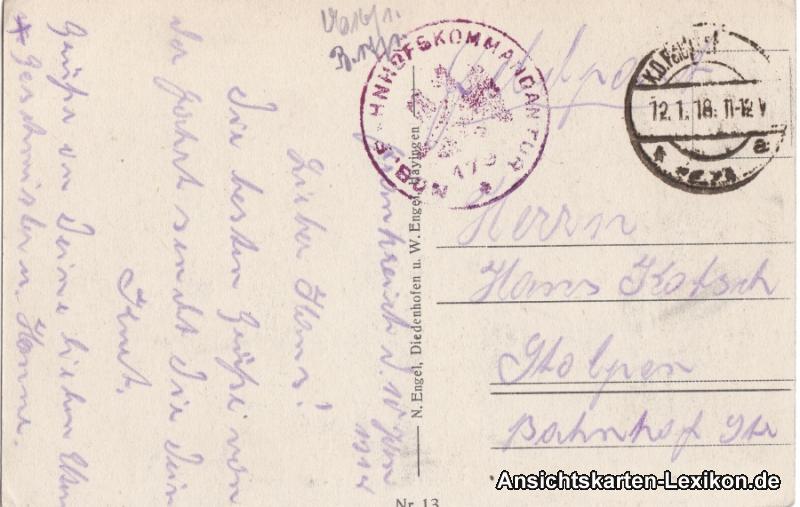 BAHNHOFSKOMMANDANTUR
173
K.D. Feldpost
12.1.18. 11-12 V
a
Feldpost
Frankreich d. 10 Jan
1918
Lieber Hans!
Die besten Grüße von
der Fahrt sendet Dir Dein
Knut.
Grüße an Deine lieben Eltern
Geschwister u. Hanne.
Herrn
Hans Kotsch
Stolpen
Bahnhof Str
N. Engel, Diedenhofen u. W. Engel, Hayingen
Nr. 13
Ansichtskarten-Lexikon.de